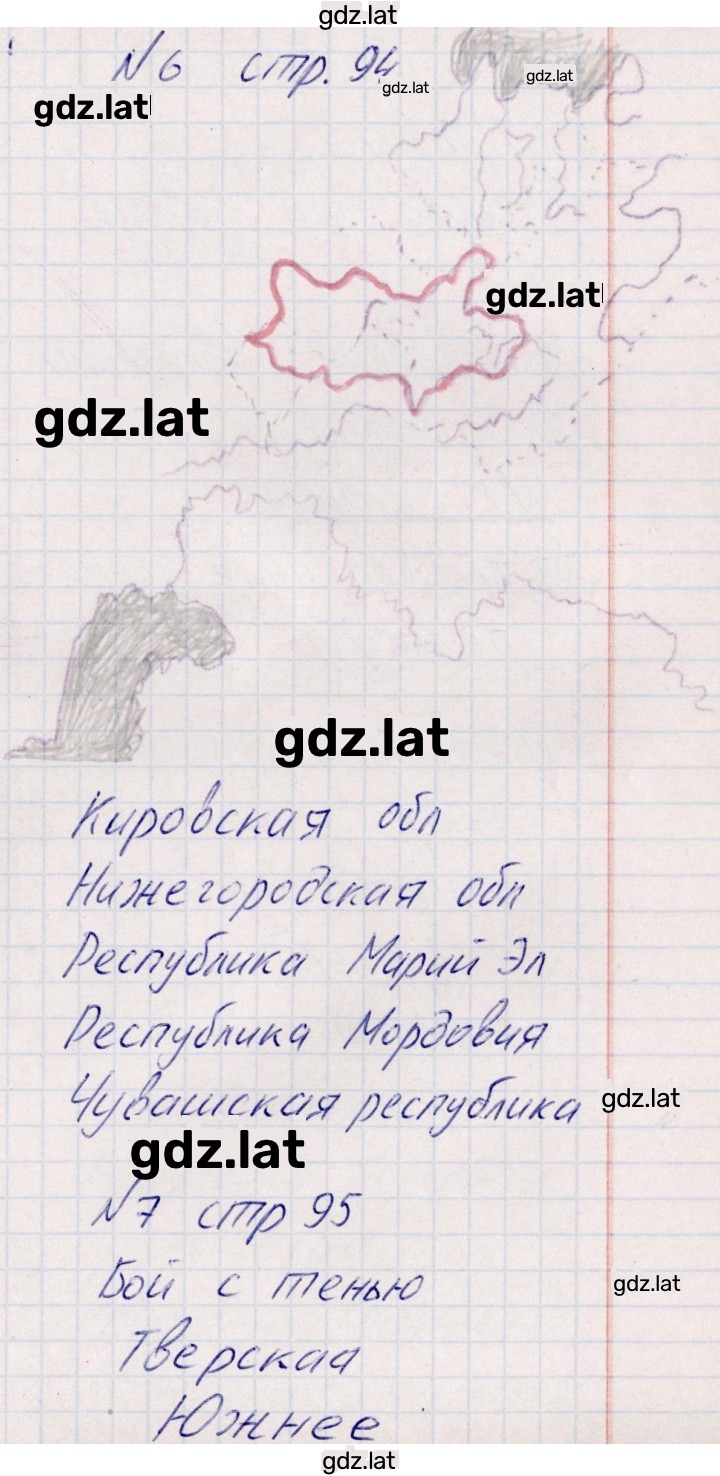 gdz.lat
№6 стр. 94
gdz.lat
gdz.lat
gdz.lat
gdz.lat
gdz.lat
gdz.lat
Кировская обл
Нижегородская обл
Республика Марий Эл
Республика Мордовия
Чувашская республика
gdz.lat
gdz.lat
№7 стр 95
Бой с тенью
gdz.lat
Тверская
Южнее
gdz.lat